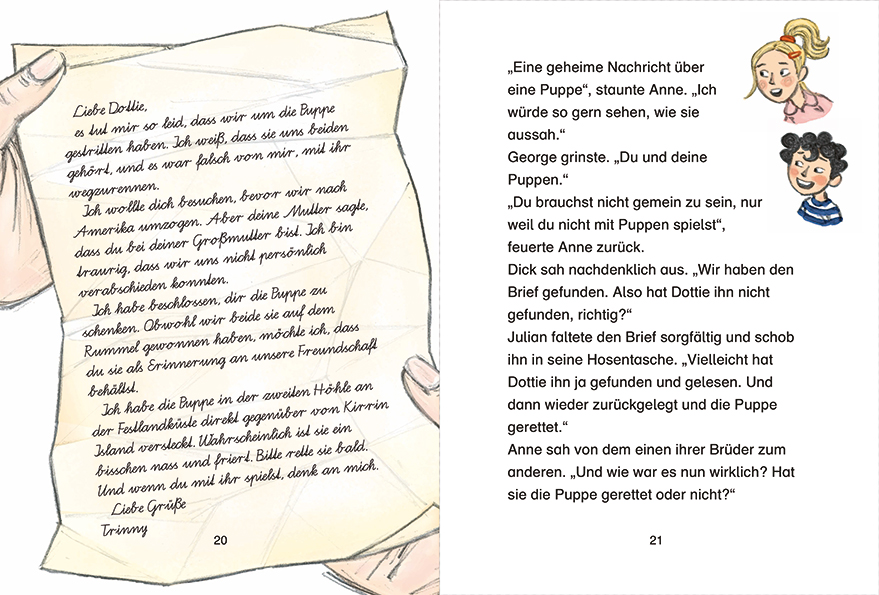 Liebe Dottie,
es tut mir so leid, dass wir um die Puppe
gestritten haben. Ich weiß, dass sie uns beiden
gehört, und es war falsch von mir, mit ihr
wegzurennen.
Ich wollte dich besuchen, bevor wir nach
Amerika umzogen. Aber deine Mutter sagte,
dass du bei deiner Großmutter bist. Ich bin
traurig, dass wir uns nicht persönlich
verabschieden konnten.
Ich habe beschlossen, dir die Puppe zu
schenken. Obwohl wir beide sie auf dem
Rummel gewonnen haben, möchte ich, dass
du sie als Erinnerung an unsere Freundschaft
behältst.
Ich habe die Puppe in der zweiten Höhle an
der Festlandküste direkt gegenüber von Kirrin
Island versteckt. Wahrscheinlich ist sie ein
bisschen nass und friert. Bitte rette sie bald.
Und wenn du mit ihr spielst, denk an mich.
Liebe Grüße
Trinny
20
„Eine geheime Nachricht über
eine Puppe“, staunte Anne. „Ich
würde so gern sehen, wie sie
aussah.“
George grinste. „Du und deine
Puppen.“
„Du brauchst nicht gemein zu sein, nur
weil du nicht mit Puppen spielst“,
feuerte Anne zurück.
Dick sah nachdenklich aus. „Wir haben den
Brief gefunden. Also hat Dottie ihn nicht
gefunden, richtig?“
Julian faltete den Brief sorgfältig und schob
ihn in seine Hosentasche. „Vielleicht hat
Dottie ihn ja gefunden und gelesen. Und
dann wieder zurückgelegt und die Puppe
gerettet.“
Anne sah von dem einen ihrer Brüder zum
anderen. „Und wie war es nun wirklich? Hat
sie die Puppe gerettet oder nicht?“
21